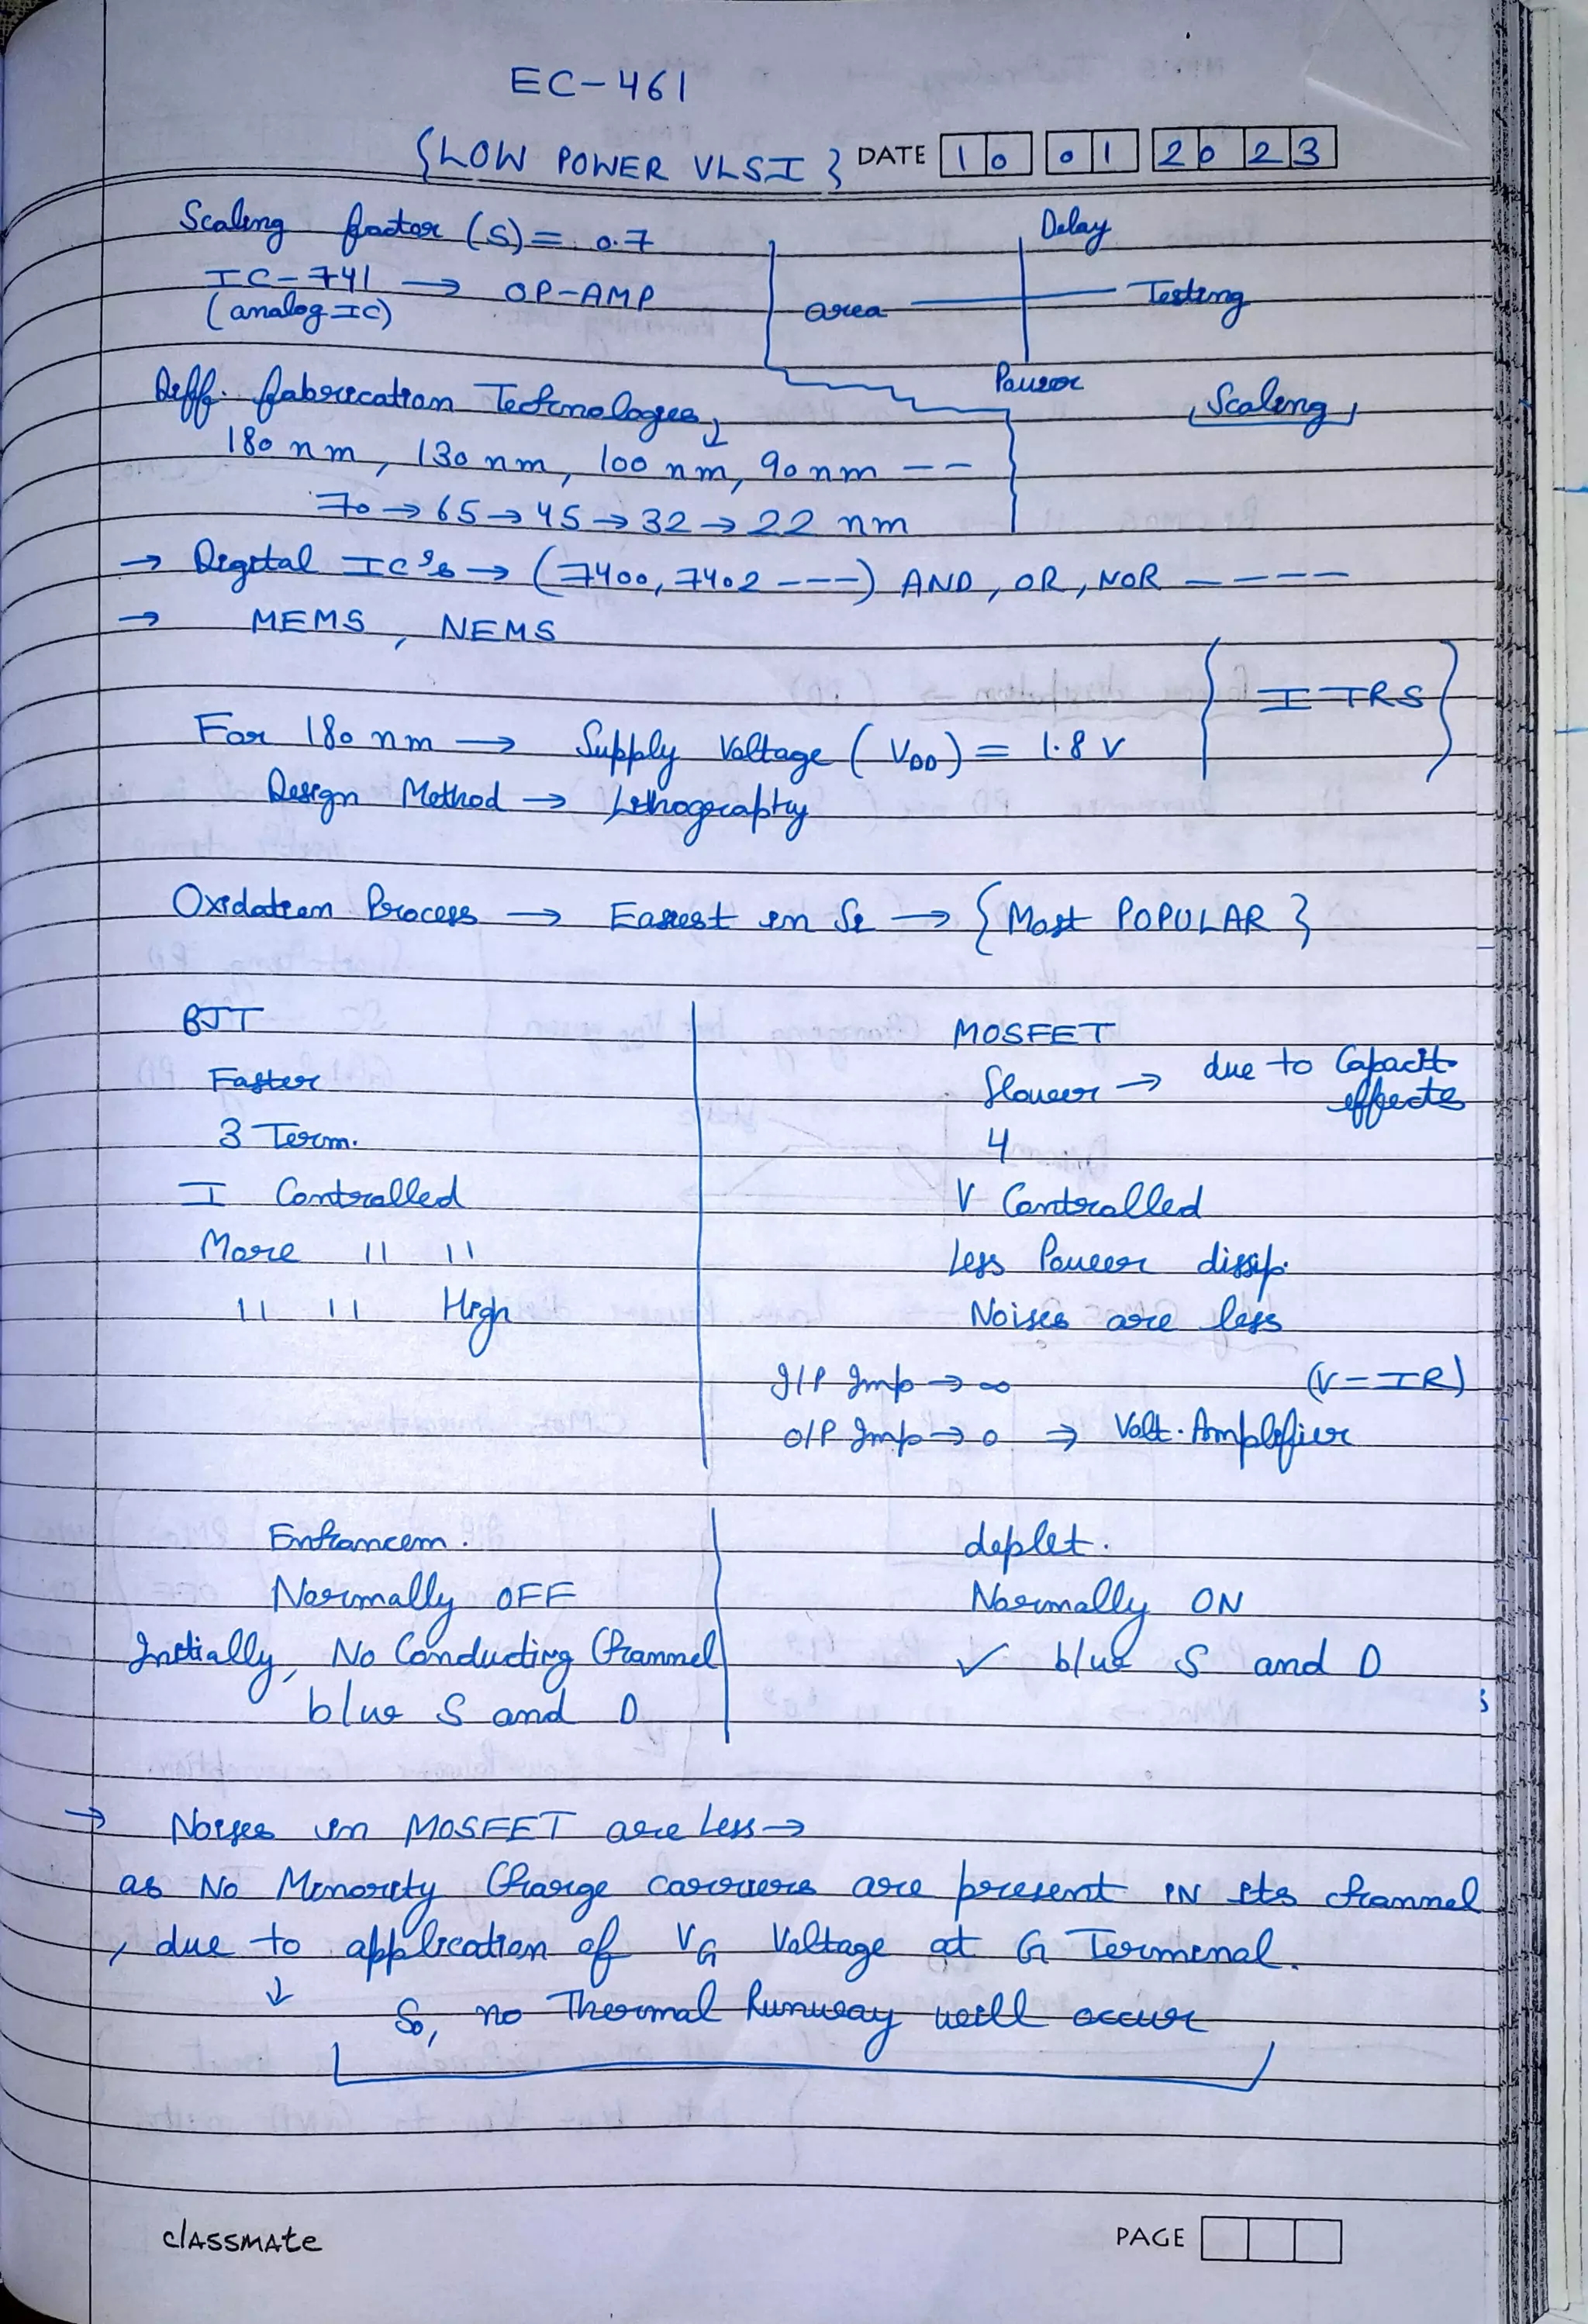 EC-461
{LOW POWER VLSI} DATE 10 01 2023
Scaling factor (S) = 0.7
IC-741 → OP-AMP
(analog IC)
Delay
area Testing
Power
Scaling
Diff. fabrication Technologies,
180 nm, 130 nm, 100 nm, 90 nm --
70 → 65 → 45 → 32 → 22 nm
→ Digital IC's → (7400, 7402 ---) AND, OR, NOR ----
→ MEMS, NEMS
{ ITRS }
For 180 nm → Supply Voltage (VDD) = 1.8 V
Design Method → Lithography
Oxidation Process → Easiest in Si → {Most POPULAR}
BJT MOSFET
Faster Slower → due to Capacit. effects
3 Term. 4
I Controlled V Controlled
More 11 11 Less Power dissip.
11 11 High Noises are less
I/P Imp → ∞ (V=IR)
O/P Imp → 0 ⇒ Volt. Amplifier
Enhancem. deplet.
Normally OFF Normally ON
Initially, No Conducting Channel ✓ b/w S and D
b/w S and D
→ Noises in MOSFET are Less →
as No Minority Charge carriers are present IN its channel
, due to application of VG Voltage at G Terminal.
↓
So, no Thermal Runway will occur
classmate
PAGE